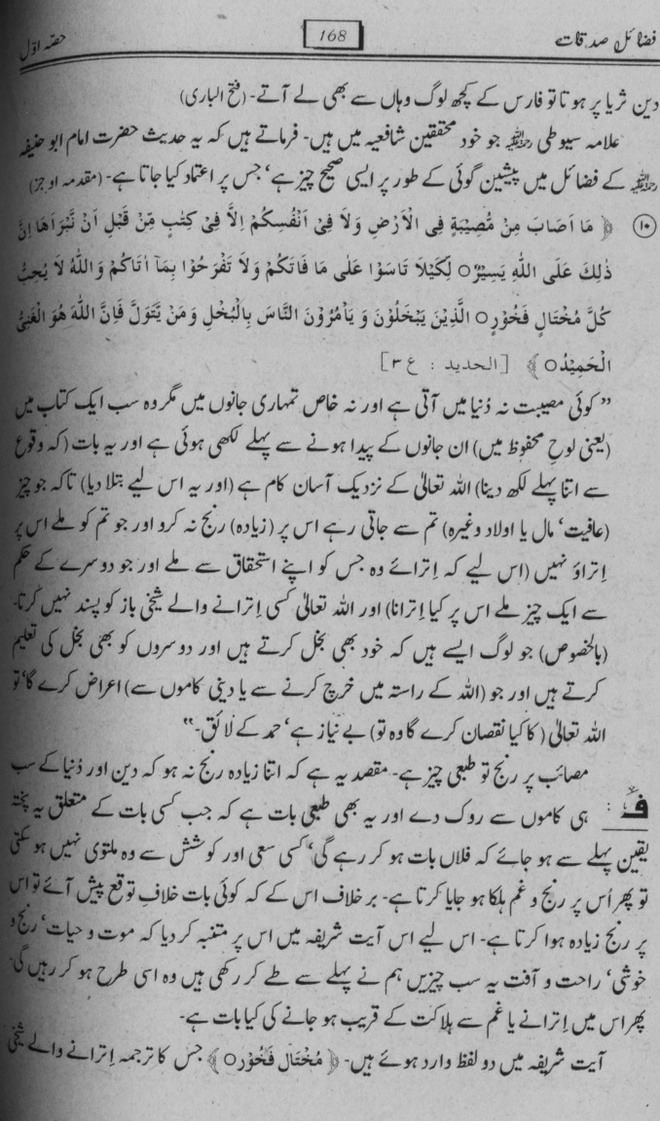 فضائل صدقات 168 حصہ اوّل
دین ثریا پر ہوتا تو فارس کے کچھ لوگ وہاں سے بھی لے آتے۔ (فتح الباری)
علامہ سیوطی رحمۃ اللہ علیہ جو خود محققین شافعیہ میں ہیں۔ فرماتے ہیں کہ یہ حدیث حضرت امام ابو حنیفہ
رحمۃ اللہ علیہ کے فضائل میں پیشین گوئی کے طور پر ایسی صحیح چیز ہے‘ جس پر اعتماد کیا جاتا ہے۔ (مقدمہ اوجز)
⑩ ﴿ مَا اَصَابَ مِنْ مُّصِیْبَةٍ فِی الْاَرْضِ وَلَا فِیْ اَنْفُسِکُمْ اِلَّا فِیْ کِتٰبٍ مِّنْ قَبْلِ اَنْ نَّبْرَاَهَا اِنَّ
ذٰلِكَ عَلَی اللّٰهِ یَسِیْرٌ○ لِّکَیْلَا تَاْسَوْا عَلٰی مَا فَاتَکُمْ وَلَا تَفْرَحُوْا بِمَآ اٰتَاکُمْ وَاللّٰهُ لَا یُحِبُّ
کُلَّ مُخْتَالٍ فَخُوْرٍ○ الَّذِیْنَ یَبْخَلُوْنَ وَ یَاْمُرُوْنَ النَّاسَ بِالْبُخْلِ وَمَنْ یَّتَوَلَّ فَاِنَّ اللّٰهَ هُوَ الْغَنِیُّ
الْحَمِیْدُ○ ﴾ [الحدید : ع ۳]
”کوئی مصیبت نہ دُنیا میں آتی ہے اور نہ خاص تمہاری جانوں میں مگر وہ سب ایک کتاب میں
(یعنی لوح محفوظ میں) ان جانوں کے پیدا ہونے سے پہلے لکھی ہوئی ہے اور یہ بات (کہ وقوع
سے اتنا پہلے لکھ دینا) اللہ تعالیٰ کے نزدیک آسان کام ہے (اور یہ اس لیے بتلا دیا) تاکہ جو چیز
(عافیت‘ مال یا اولاد وغیرہ) تم سے جاتی رہے اس پر (زیادہ) رنج نہ کرو اور جو تم کو ملے اس پر
اِتراؤ نہیں (اس لیے کہ اِترائے وہ جس کو اپنے استحقاق سے ملے اور جو دوسرے کے حکم
سے ایک چیز ملے اس پر کیا اِترانا) اور اللہ تعالیٰ کسی اِترانے والے شیخی باز کو پسند نہیں کرتا۔
(بالخصوص) جو لوگ ایسے ہیں کہ خود بھی بخل کرتے ہیں اور دوسروں کو بھی بخل کی تعلیم
کرتے ہیں اور جو (اللہ کے راستہ میں خرچ کرنے سے یا دینی کاموں سے) اعراض کرے گا‘ تو
اللہ تعالیٰ (کا کیا نقصان کرے گا وہ تو) بے نیاز ہے‘ حمد کے لائق۔“
مصائب پر رنج تو طبعی چیز ہے۔ مقصد یہ ہے کہ اتنا زیادہ رنج نہ ہو کہ دین اور دُنیا کے سب
ف : ہی کاموں سے روک دے اور یہ بھی طبعی بات ہے کہ جب کسی بات کے متعلق یہ پختہ
یقین پہلے سے ہو جائے کہ فلاں بات ہو کر رہے گی‘ کسی سعی اور کوشش سے وہ ملتوی نہیں ہو سکتی
تو پھر اُس پر رنج و غم ہلکا ہو جایا کرتا ہے۔ برخلاف اس کے کہ کوئی بات خلافِ توقع پیش آئے تو اس
پر رنج زیادہ ہوا کرتا ہے۔ اس لیے اس آیت شریفہ میں اس پر متنبہ کر دیا کہ موت و حیات‘ رنج و
خوشی‘ راحت و آفت یہ سب چیزیں ہم نے پہلے سے طے کر رکھی ہیں وہ اسی طرح ہو کر رہیں گی۔
پھر اس میں اِترانے یا غم سے ہلاکت کے قریب ہو جانے کی کیا بات ہے۔
آیت شریفہ میں دو لفظ وارد ہوئے ہیں۔ ﴿ مُخْتَالٍ فَخُوْرٍ○ ﴾ جس کا ترجمہ اِترانے والے شیخی